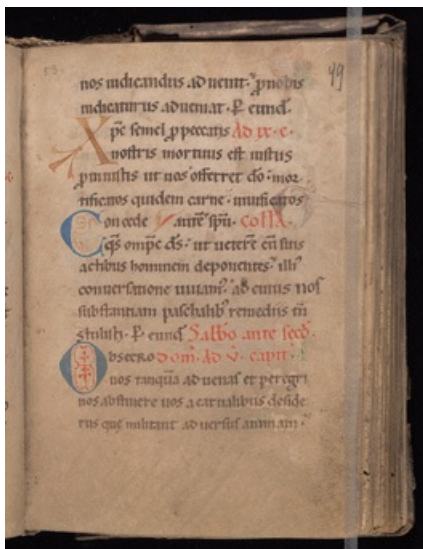 53. 99
nos iudicandus aduenit. ꝓ nobis
iudicaturus adueniat. P eund.
Xp̄c semel ꝓ peccatis Ad ix. c.
nostris mortuus est iustus
ꝓ iniustis ut nos offerret dō. mor
tificatos quidem carne. uiuificatos
Concede autē spū. coll̄a.
qs̄ omp̄c ds̄. ut ueterē cū suis
actibus hominem deponentes. illi
conuersatione uiuam᷒. ad cuius nos
substantiam paschalib᷒ remediis
P eund. Sabbo ante secd.
Obsecro Dom. Ad V. capit.
nos tanquā aduenas et peregri
nos abstinere uos a carnalibus deside
riis que militant aduersus animam.